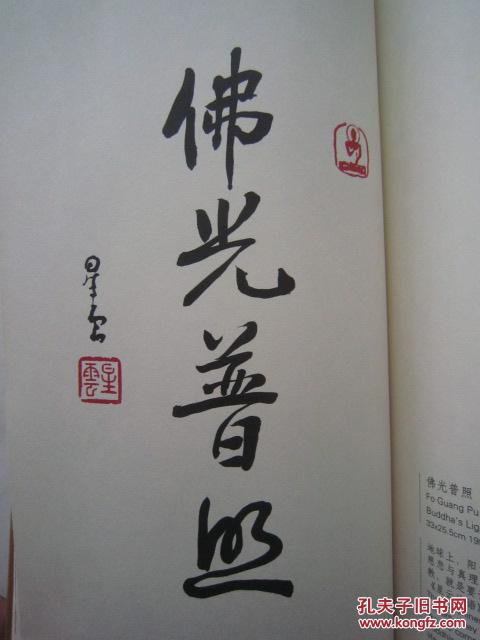 佛光普照
星雲
星雲
佛光普照
Fo Guang Pu
Buddha's Lig
33x25.5cm 19
地球上，阳
教，就是要
孔夫子旧书网
www.kongfz.com